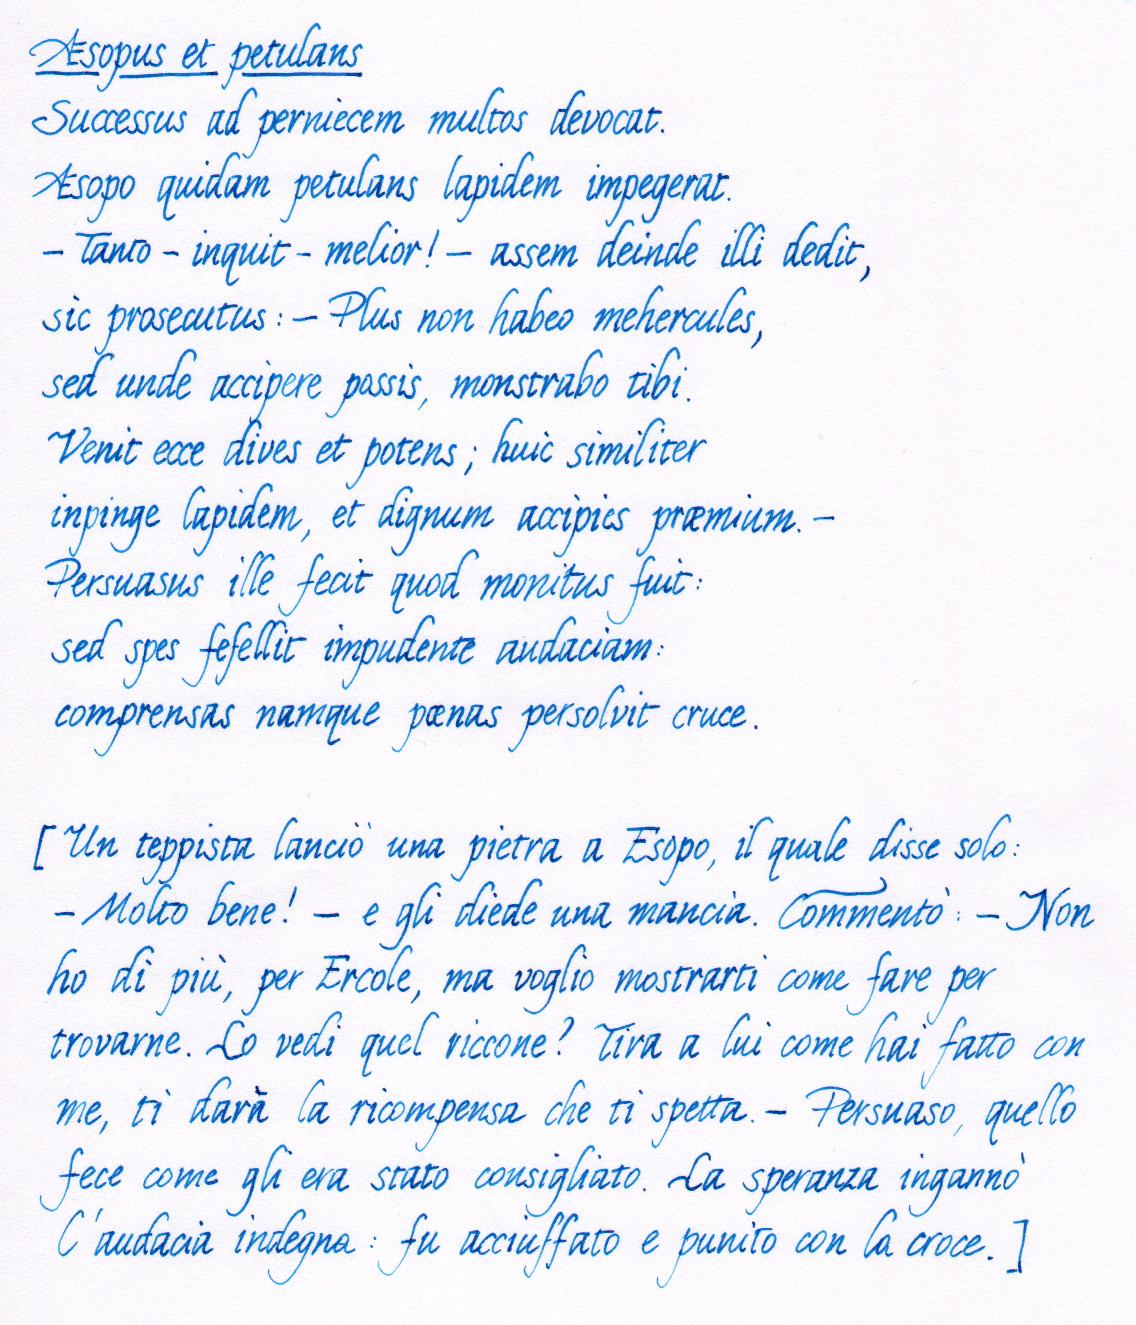 Æsopus et petulans
Successus ad perniecem multos devocat.
Æsopo quidam petulans lapidem impegerat.
- Tanto - inquit - melior! - assem deinde illi dedit,
sic prosecutus: - Plus non habeo mehercules,
sed unde accipere possis, monstrabo tibi.
Venit ecce dives et potens; huic similiter
inpinge lapidem, et dignum accipies præmium. -
Persuasus ille fecit quod monitus fuit:
sed spes fefellit impudente audaciam:
comprensas namque pœnas persolvit cruce.
[Un teppista lanciò una pietra a Esopo, il quale disse solo:
- Molto bene! - e gli diede una mancia. Commentò: - Non
ho di più, per Ercole, ma voglio mostrarti come fare per
trovarne. Lo vedi quel riccone? Tira a lui come hai fatto con
me, ti darà la ricompensa che ti spetta. - Persuaso, quello
fece come gli era stato consigliato. La speranza ingannò
l'audacia indegna: fu acciuffato e punito con la croce.]